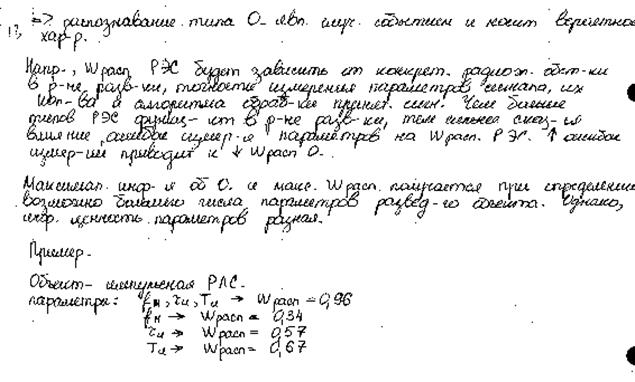 => распознавание типа О. явл. случ. событием и носит вероятное
13, хар-р.
Напр., Wрасп РЭС будет зависить от конкрет. радиоэл. обст-ки
в р-не разв-ки, точности измерения параметров сигнала, их
кол-ва и алгоритма обраб-ки принят. сигн. Чем больше
типов РЭС функц-ют в р-не разв-ки, тем сильнее сказ-ся
влияние ошибок измер-я параметров на Wрасп. РЭС. ↑ ошибок
измер-ий приводит к ↓ Wрасп О.
Максимал. инф-я об О. и макс. Wрасп. получается при определении
возможно большего числа параметров развед-го объекта. Однако,
инф. ценность параметров разная.
Пример.
Объект - импульсная РЛС.
параметры: fн, τи, Tи → Wрасп = 0,96
fн → Wрасп = 0,34
τи → Wрасп = 0,57
Tи → Wрасп = 0,67